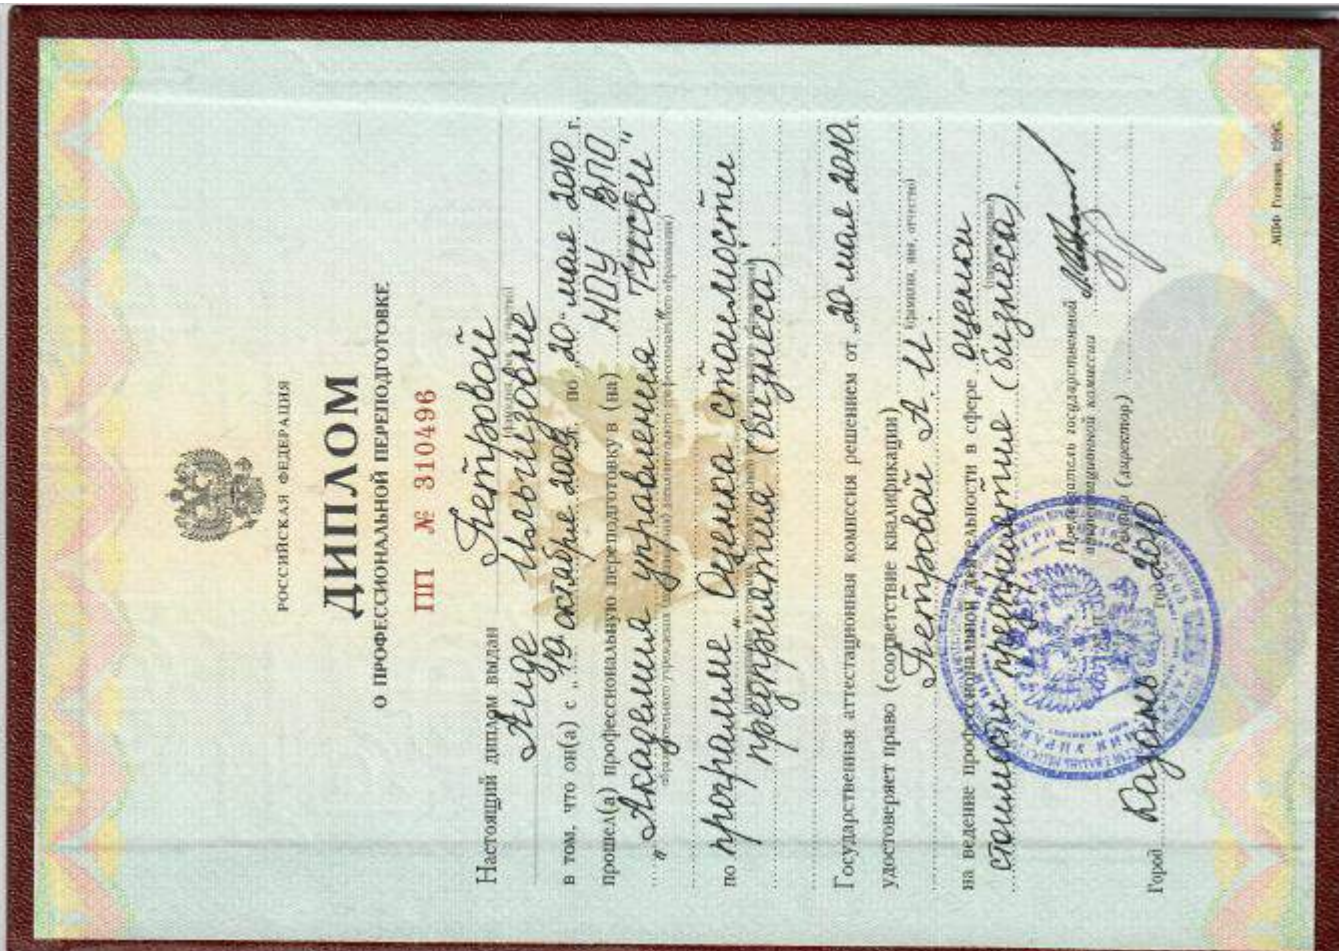 РОССИЙСКАЯ ФЕДЕРАЦИЯ
ДИПЛОМ
О ПРОФЕССИОНАЛЬНОЙ ПЕРЕПОДГОТОВКЕ
ПП № 310496
Настоящий диплом выдан Петровой
Аиде Ильгизовне
в том, что он(а) с „19" октября 2009г. по „20" мая 2010 г.
прошел(а) профессиональную переподготовку в (на) НОУ ВПО
"Академия управления "ТИСБИ"
по программе „Оценка стоимости
предприятия (бизнеса)"
Государственная аттестационная комиссия решением от „20 мая 2010г.
удостоверяет право (соответствие квалификации)
Петровой А. И.
(фамилия, имя, отчество)
на ведение профессиональной деятельности в сфере оценки
стоимости предприятие (бизнеса)
Председатель государственной
аттестационной комиссии
Ректор (директор)
Город Казань год 2010
МПФ Гознака. 1996.